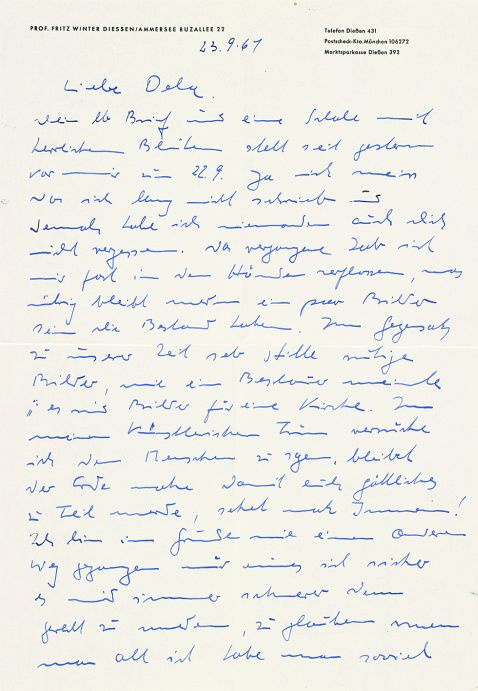 PROF. FRITZ WINTER DIESSEN/AMMERSEE BUZALLEE 22
Telefon Dießen 431
Postscheck-Kto. München 106272
Marktsparkasse Dießen 392
23.9.61
Liebe
Brief und eine Schale mit
herrlichen Blüten steht seit gestern
vor mir zum 22.9. Ja ich
ich lang nicht schrieb
habe ich niemanden auch dich
nicht vergessen.
mir fast in den Händen zerflossen, was
übrig bleibt werden ein paar Bilder
sein die Bestand haben. Im Gegensatz
zu unserer Zeit sehr stille ruhige
Bilder, wie ein Besucher meinte
Bilder für eine Kirche. In
meinem künstlerischen Tun versuche
ich den Menschen zu sagen, bleibt
der Erde nahe damit euch göttliches
zu Teil werde, sehet nach Innen!
Ich bin im Grunde nie einen anderen
Weg gegangen nur eines ist sicher
es wird immer schwerer dem
gerecht zu werden, zu glauben
man all ich habe man soviel